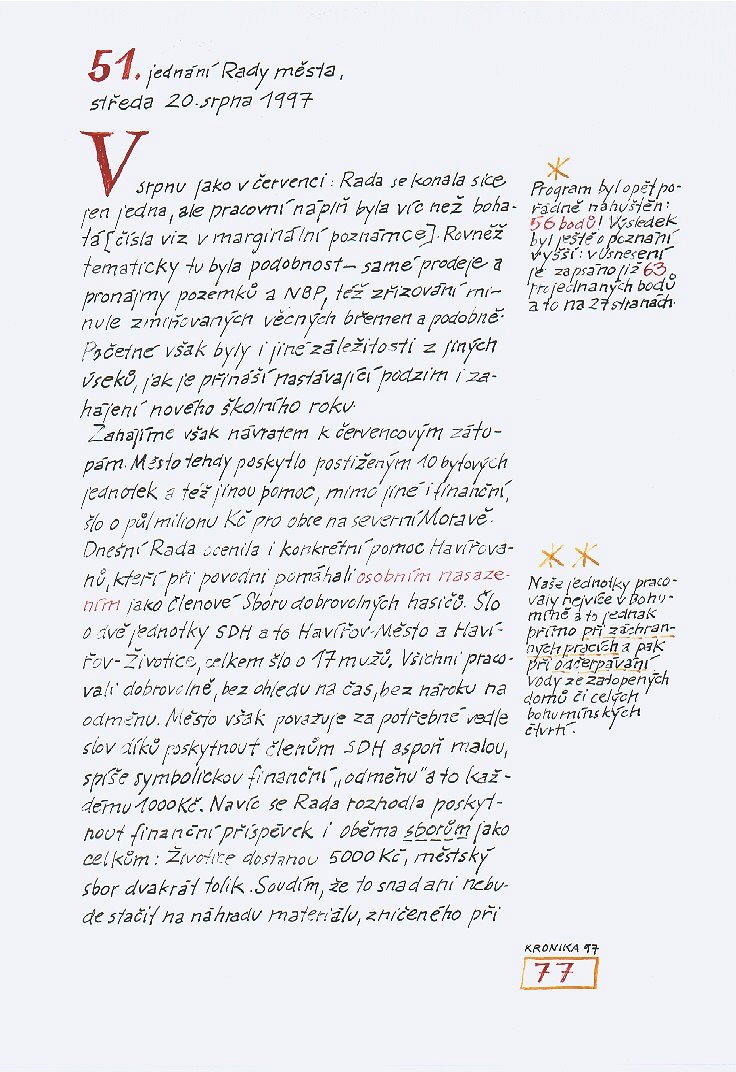 51. jednání Rady města,
středa 20. srpna 1997
V srpnu jako v červenci: Rada se konala sice
jen jedna, ale pracovní náplň byla víc než boha-
tá [čísla viz v marginální poznámce]. Rovněž
tematicky tu byla podobnost – samé prodeje a
pronájmy pozemků a NBP, též zřizování mi-
nule zmiňovaných věcných břemen a podobně.
Početné však byly i jiné záležitosti z jiných
úseků, jak je přináší nastávající podzim i za-
hájení nového školního roku.
Zahajíme však návratem k červencovým záto-
pám. Město tehdy poskytlo postiženým 10 bytových
jednotek a též jinou pomoc, mimo jiné i finanční,
šlo o půl milionu Kč pro obce na severní Moravě.
Dnešní Rada ocenila i konkrétní pomoc Havířova-
nů, kteří při povodni pomáhali osobním nasaze-
ním jako členové Sboru dobrovolných hasičů. Šlo
o dvě jednotky SDH a to Havířov-Město a Haví-
řov-Životice, celkem šlo o 17 mužů. Všichni praco-
vali dobrovolně, bez ohledu na čas, bez nároku na
odměnu. Město však považuje za potřebné vedle
slov díků poskytnout členům SDH aspoň malou,
spíše symbolickou finanční „odměnu" a to kaž-
dému 1000 Kč. Navíc se Rada rozhodla poskyt-
nout finanční příspěvek i oběma sborům jako
celkům: Životice dostanou 5000 Kč, městský
sbor dvakrát tolik. Soudím, že to snad ani nebu-
de stačit na náhradu materiálu, zničeného při
*
Program byl opět po-
řádně nahuštěn:
56 bodů! Výsledek
byl ještě o poznání
vyšší: v usnesení
je zapsáno již 63
projednaných bodů
a to na 27 stranách.
* *
Naše jednotky praco-
valy nejvíce v Bohu-
míně a to jednak
přímo při záchran-
ných pracích a pak
při odčerpávání
vody ze zatopených
domů či celých
bohumínských
čtvrtí.
KRONIKA 97
77